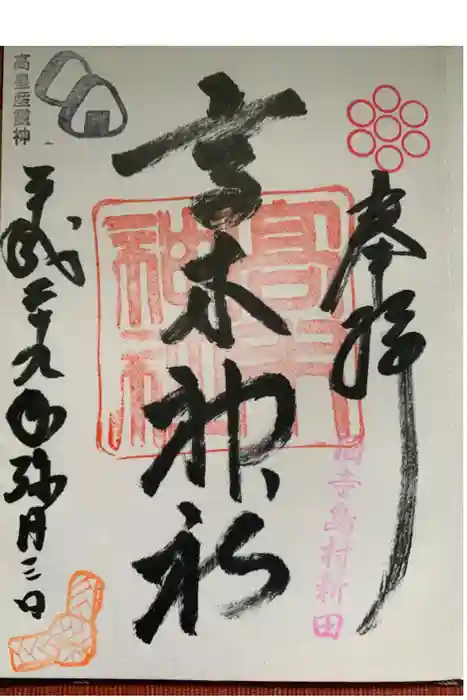 奉拝
旧寺島村新田
高木神社
高木神社
高皇産霊神
平成二十九年弥月三日